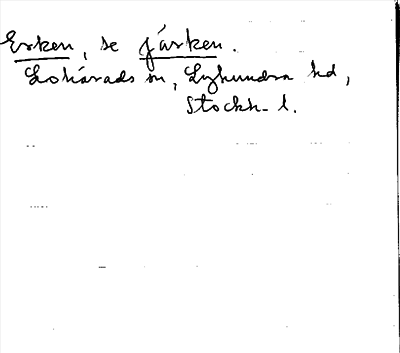 Erken, se Järken.
Lohärads sn, Lyhundra hd,
Stockh. l.